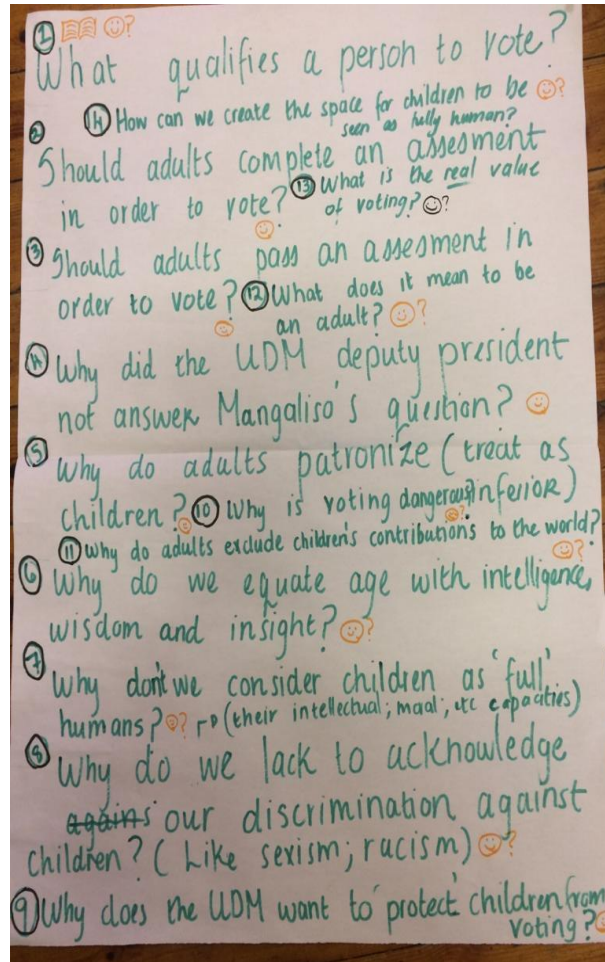 ① ?
What qualifies a person to vote?
⑭ How can we create the space for children to be ?
seen as fully human?
② Should adults complete an assesment
in order to vote?
⑬ What is the real value
of voting? ?
③ Should adults pass an assesment in
order to vote?
⑫ What does it mean to be
an adult? ?
④ Why did the UDM deputy president
not answer Mangaliso's question?
⑤ Why do adults patronize (treat as
children? inferior)
⑩ Why is voting dangerous? ?
⑪ Why do adults exclude children's contributions to the world?
?
⑥ Why do we equate age with intelligence,
wisdom and insight? ?
⑦ Why don't we consider children as 'full'
humans? ? (their intellectual; moal; etc capacities)
⑧ Why do we lack to acknowledge
agains our discrimination against
children? (Like sexism; racism) ?
⑨ Why does the UDM want to 'protect' children from
voting?